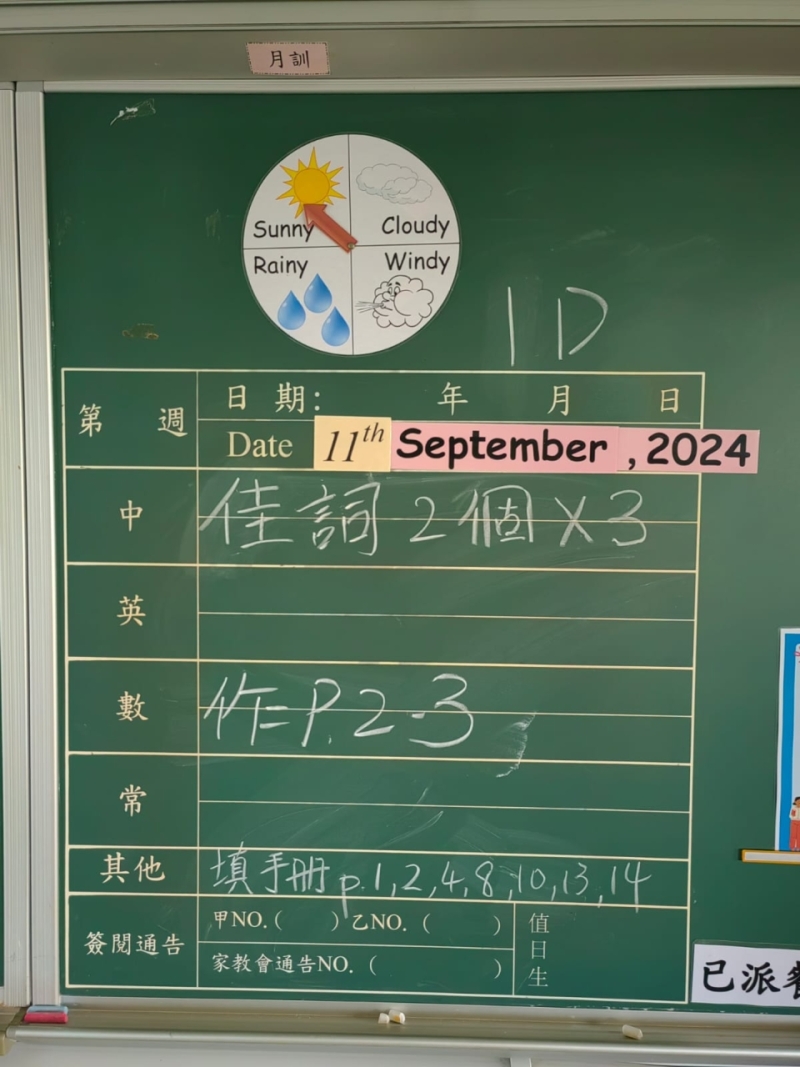 月訓
Sunny
Cloudy
Rainy
Windy
1D
第 週
日期： 年 月 日
Date 11th September, 2024
中
佳詞2個X3
英
數
作=P.2-3
常
其他
填手冊p.1,2,4,8,10,13,14
簽閱通告
甲NO.( ) 乙NO.( )
家教會通告NO.( )
值日生
已派